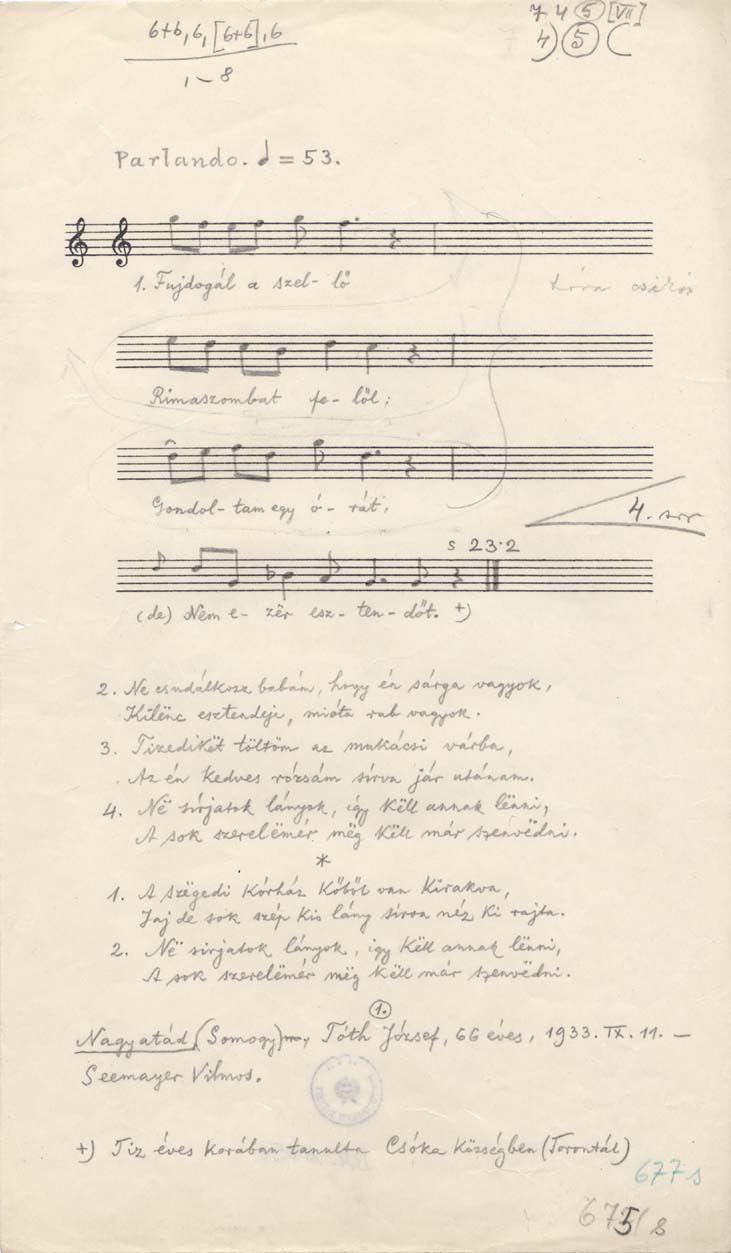 6+6, 6, [6+6], 6
1–8
7 4 5 [VII]
4) 5 (
Parlando. = 53.
1. Fujdogál a szel- lő
Rimaszombat fe- lől;
Gondol- tam egy ó- rát;
4. sor
s 23·2
(de) Nem e- zër esz- ten- dőt. +)
2. Ne csudálkozz babám, hogy én sárga vagyok,
Kilënc esztendeje, mióta rab vagyok.
3. Tizedikët töltöm az mukácsi várba,
Az én kedves rózsám sírva jár utánam.
4. Në sírjatok lányok, így këll annak lënni,
A sok szerelëmér mëg këll már szenvëdni.
*
1. A szëgedi kórház kőből van kirakva,
Jaj de sok szép kis lány sírva néz ki rajta.
2. Në sirjatok lányok, igy këll annak lënni,
A sok szerelëmér mëg këll már szenvëdni.
1.
Nagyatád (Somogy), Tóth József, 66 éves, 1933. IX. 11. –
Seemayer Vilmos.
+) Tiz éves korában tanulta Csóka községben (Torontál)
677 s
675/s